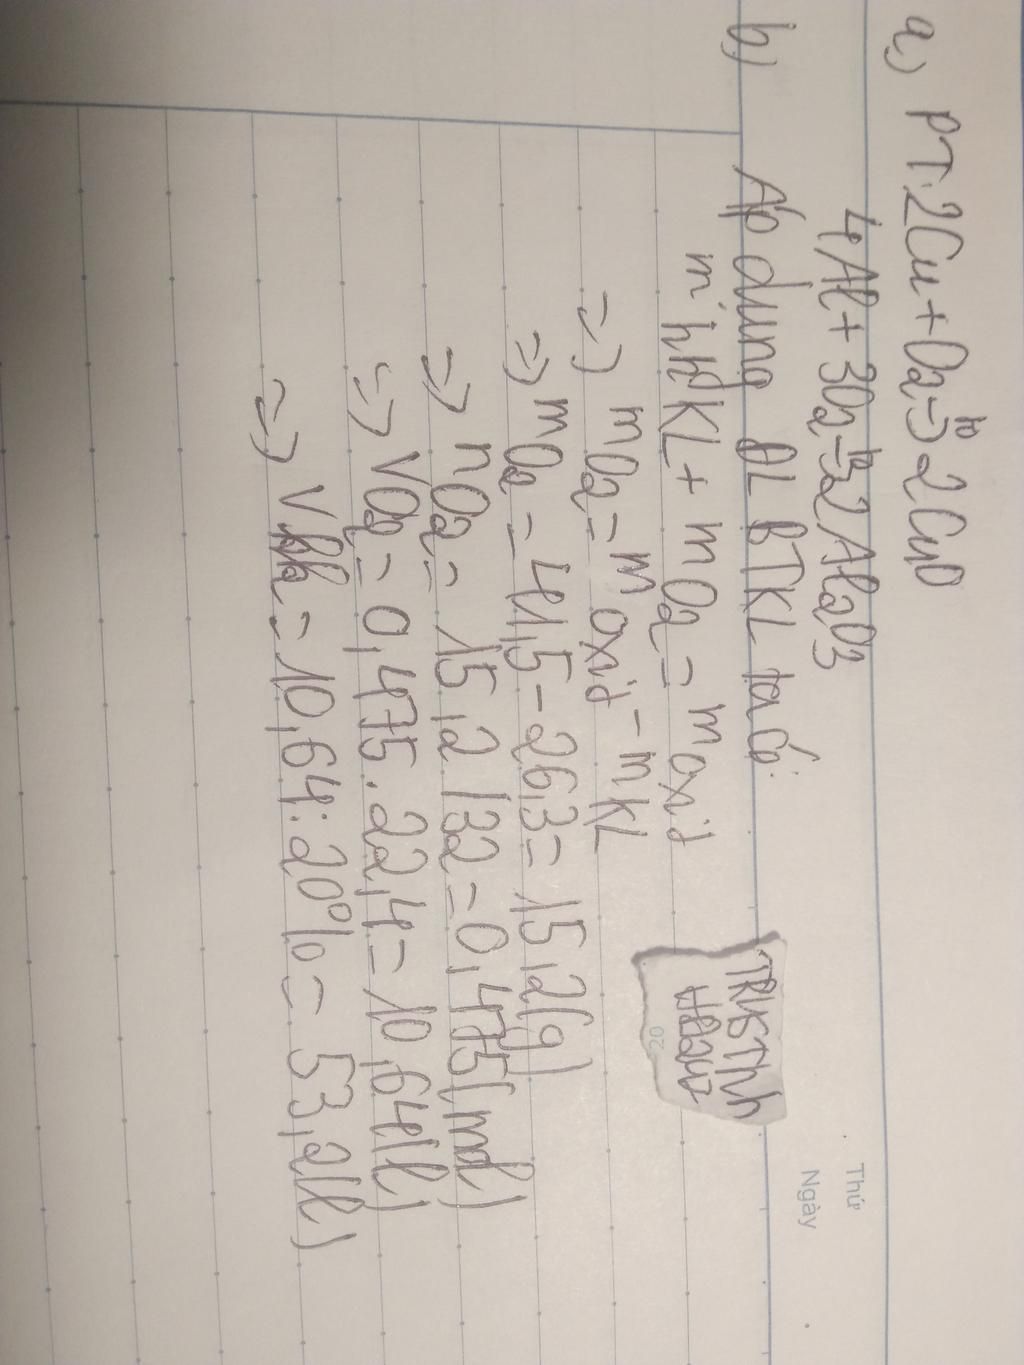 Thứ
Ngày
a) PT: 2Cu + O2 -t°-> 2CuO
4Al + 3O2 -t°-> 2Al2O3
b) Áp dụng ĐL BTKL ta có:
m hh KL + m O2 = m oxit
=> m O2 = m oxit - m KL
=> m O2 = 41,5 - 26,3 = 15,2(g)
=> n O2 = 15,2 / 32 = 0,475(mol)
=> V O2 = 0,475.22,4 = 10,64(l)
=> V kk = 10,64 : 20% = 53,2(l)
20